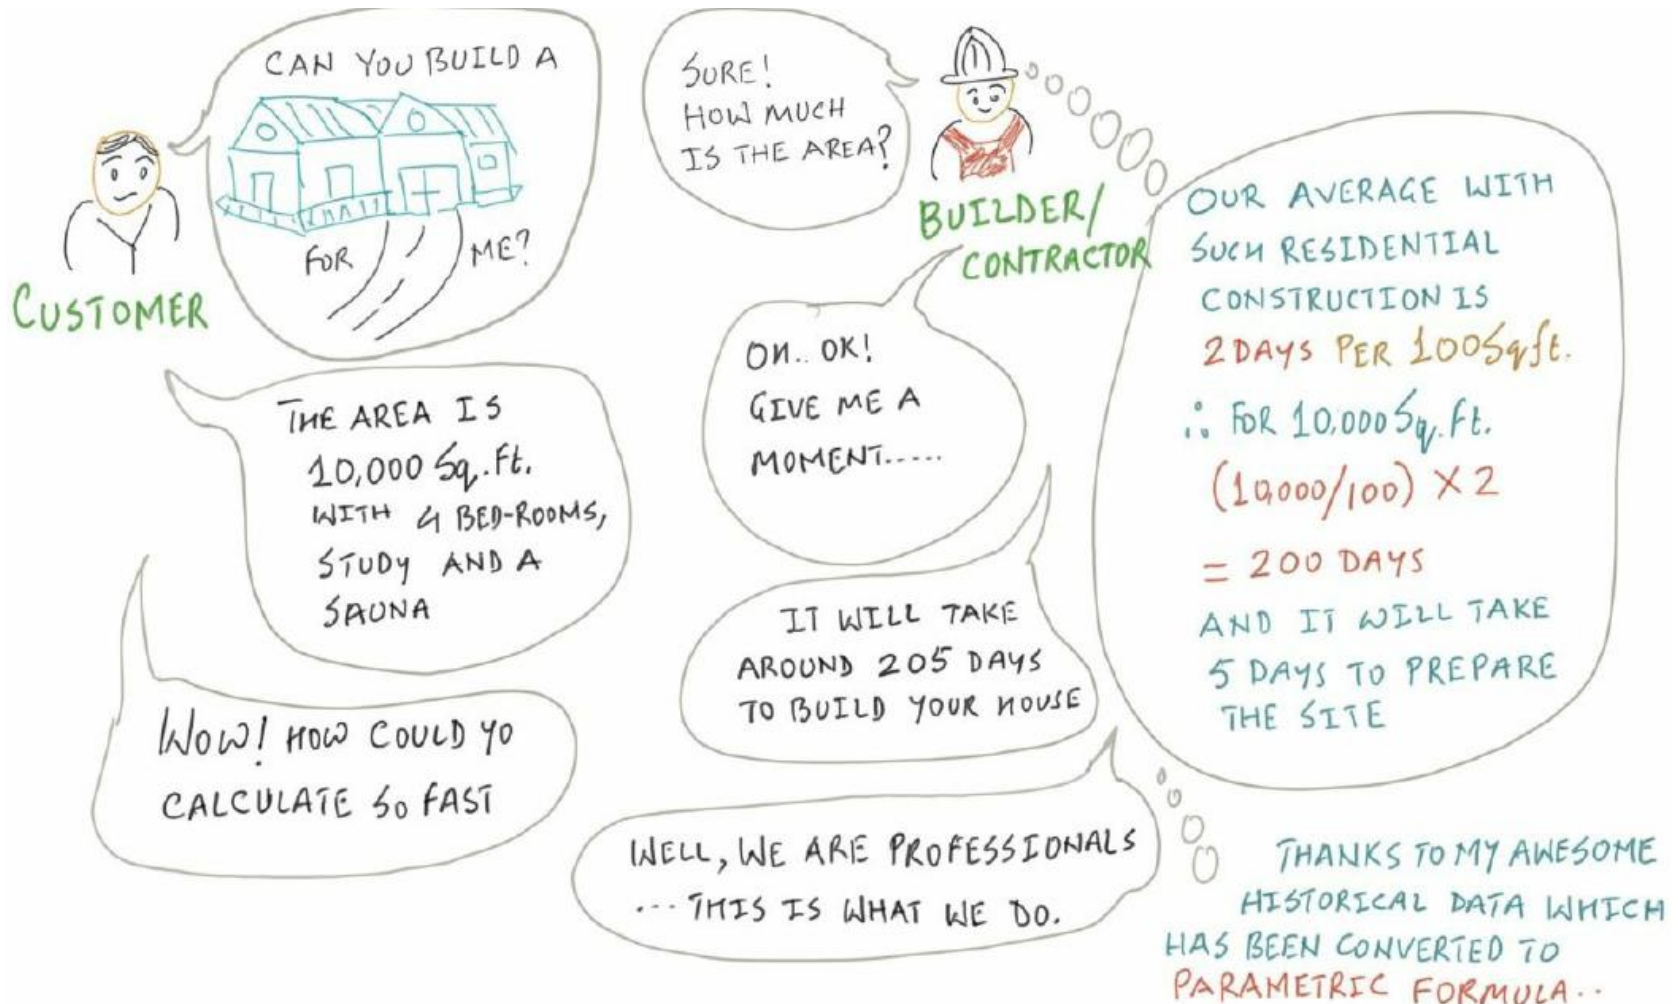 CAN YOU BUILD A
FOR ME?
CUSTOMER
SURE!
HOW MUCH
IS THE AREA?
BUILDER/
CONTRACTOR
THE AREA IS
10,000 Sq.Ft.
WITH 4 BED-ROOMS,
STUDY AND A
SAUNA
OH.. OK!
GIVE ME A
MOMENT.....
OUR AVERAGE WITH
SUCH RESIDENTIAL
CONSTRUCTION IS
2 DAYS PER 100 Sqft.
∴ FOR 10,000 Sq.Ft.
(10,000/100) X 2
= 200 DAYS
AND IT WILL TAKE
5 DAYS TO PREPARE
THE SITE
IT WILL TAKE
AROUND 205 DAYS
TO BUILD YOUR HOUSE
WOW! HOW COULD YO
CALCULATE SO FAST
WELL, WE ARE PROFESSIONALS
... THIS IS WHAT WE DO.
THANKS TO MY AWESOME
HISTORICAL DATA WHICH
HAS BEEN CONVERTED TO
PARAMETRIC FORMULA..